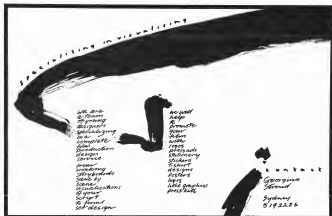 specialising in visualising
we are
a team
of young
designers
specializing
in a
complete
film
production
design
service
from
making
storyboards
scene by
scene
visualisations
of your
script
to final
set design
we will
help
to
promote
your
films
with
logos
press ads
stationery
stickers
T.shirt
designs
posters
logos
title graphics
press kits
contact
Georgina
Stroud
Sydney
5192236